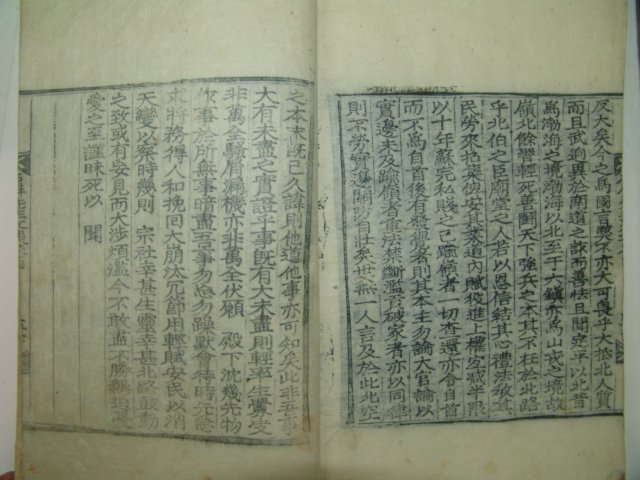 反大矣今之爲國言弊不亦大可畏乎大抵北人質
而且武逈異於南道之詐而善怯且聞定平以北昔
爲渤海之境渤海以北至于大鎭亦爲山戎之境故
嶺北餘習輕死善鬪天下強兵之本其不在於北路
乎北伯之臣廟堂之人若以恩信結其心禮法敎其
民勞來拾集俾安其業道內賦役進上權宜減半限
以十年蘇完私賤之已踰嶺者一切查還亦令自首
而不爲自首後有發覺者則其本主勿論大官論以
實邊未及踰嶺者重法禁斷濫言破家者亦以同律
則不勞實邊關防自壯矣世無一人言及於此北寇
之本末旣已久證則他道他事亦可知矣此非吾事
大有未盡之實證乎事旣有大未盡則輕率生釁反
非萬全騷有漏機亦非萬全伏願 殿下沈幾先物
作事於所無事暗盡吾事勿忘勿躁默會待時元惡
將務得人和挽回大崩汰冗節用輕賦安民以消
天變以察時幾則 宗社幸甚生靈幸甚北路鼓動
之致或有妄見而大涉煩濫今不敢盡不勝狠迫憂
愛之至謹昧死以 聞